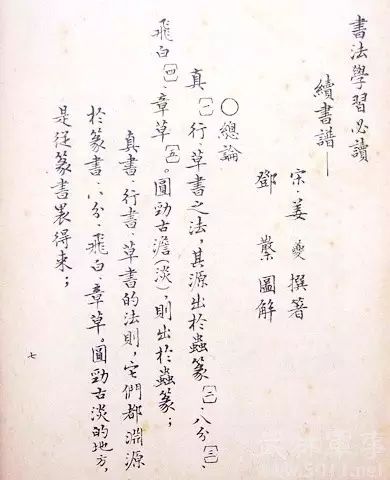 書法學習必讀
續書譜—
宋·姜夔撰著
鄧散圖解
○總論
真〔一〕、行、草書之法，其源出於蟲篆〔二〕、八分〔三〕、
飛白〔四〕、章草〔五〕。圓勁古澹(淡)，則出於蟲篆；
真書、行書、草書的法則，它們都淵源
於篆書、八分、飛白、章草。圓勁古淡的地方，
是從篆書裏得來；
七